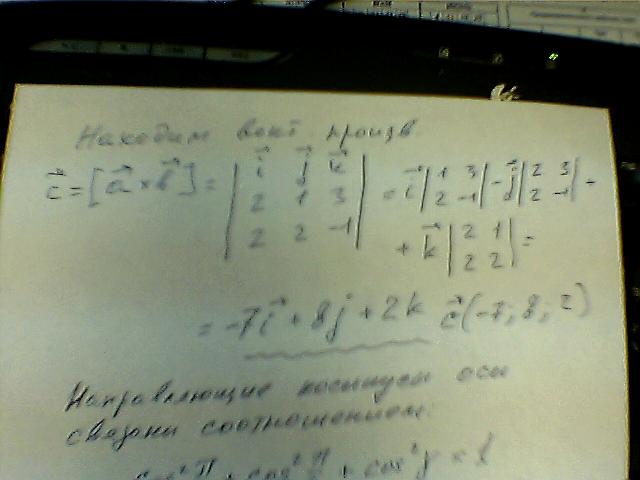 Находим вект произв.
c⃗ = [a⃗ × b⃗] = | i⃗ j⃗ k⃗ | = i⃗ | 1 3 | - j⃗ | 2 3 | +
| 2 1 3 | | 2 -1 | | 2 -1 |
| 2 2 -1 | + k⃗ | 2 1 | =
| 2 2 |
= -7i⃗ + 8j + 2k c⃗(-7; 8; 2)
Направляющие косинусы оси
связаны соотношением: